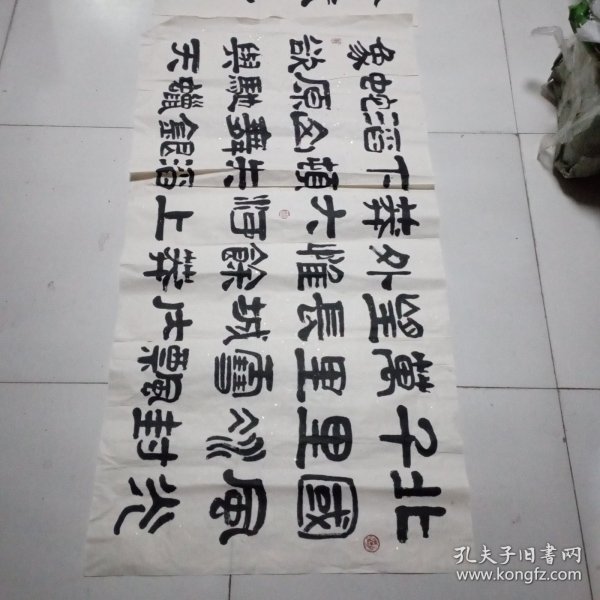 北國風光
千里冰封
萬里雪飄
望長城內
外惟餘莽
莽大河上
下頓失滔
滔山舞銀
蛇原馳蠟
象欲與天
孔夫子旧书网
www.kongfz.com